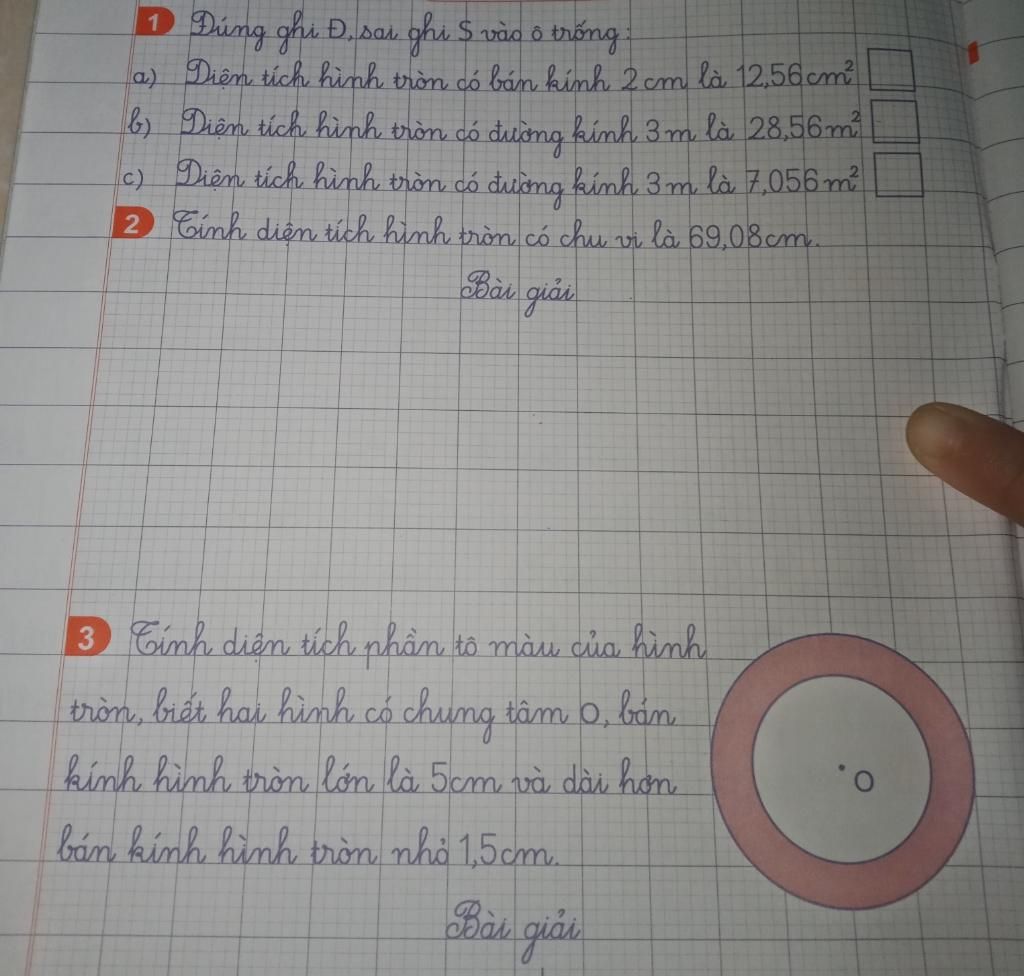 1 Đúng ghi Đ, sai ghi S vào ô trống:
a) Diện tích hình tròn có bán kính 2 cm là 12,56cm²
b) Diện tích hình tròn có đường kính 3 m là 28,56m²
c) Diện tích hình tròn có đường kính 3 m là 7,056m²
2 Tính diện tích hình tròn có chu vi là 69,08cm.
Bài giải
3 Tính diện tích phần tô màu của hình
tròn, biết hai hình có chung tâm O, bán
kính hình tròn lớn là 5cm và dài hơn
bán kính hình tròn nhỏ 1,5cm.
O
Bài giải